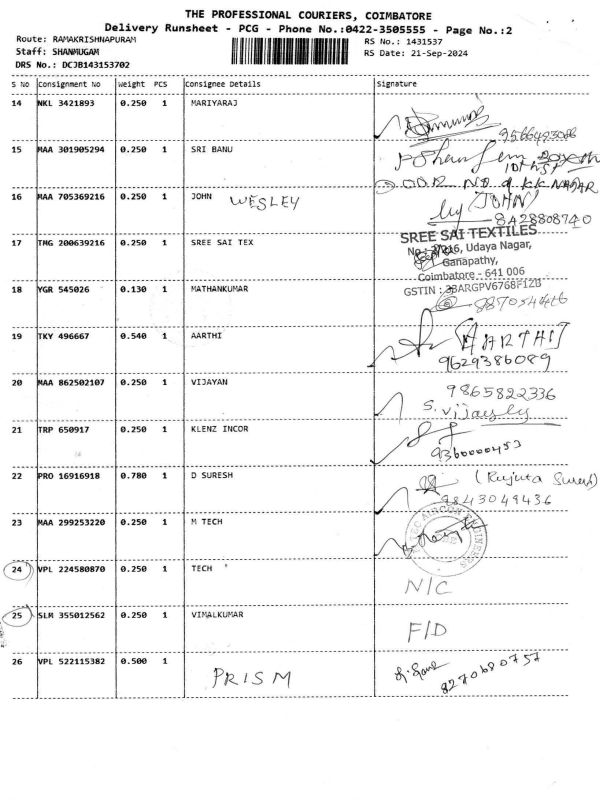 THE PROFESSIONAL COURIERS, COIMBATORE
Delivery Runsheet - PCG - Phone No.:0422-3505555 - Page No.:2
Route: RAMAKRISHNAPURAM
RS No.: 1431537
Staff: SHANMUGAM
RS Date: 21-Sep-2024
DRS No.: DCJB143153702
S No Consignment No Weight PCS Consignee Details Signature
14 NKL 3421893 0.250 1 MARIYARAJ
15 MAA 301905294 0.250 1 SRI BANU
16 MAA 705369216 0.250 1 JOHN WESLEY (JOHN)
8428808740
17 TMG 200639216 0.250 1 SREE SAI TEX
SREE SAI TEXTILES
Udaya Nagar,
Ganapathy,
Coimbatore - 641 006
18 YGR 545026 0.130 1 MATHANKUMAR
GSTIN : 33ARGPV6768F1ZB
19 TKY 496667 0.540 1 AARTHI (AARTHI)
9629386089
20 MAA 862502107 0.250 1 VIJAYAN 9865822336
21 TRP 650917 0.250 1 KLENZ INCOR
9360000453
22 PRO 16916918 0.780 1 D SURESH (Rujuta Suresh)
9843049436
23 MAA 299253220 0.250 1 M TECH
24 VPL 224580870 0.250 1 TECH
N/C
25 SLM 355012562 0.250 1 VIMALKUMAR
F/D
26 VPL 522115382 0.500 1 PRISM
8270680757